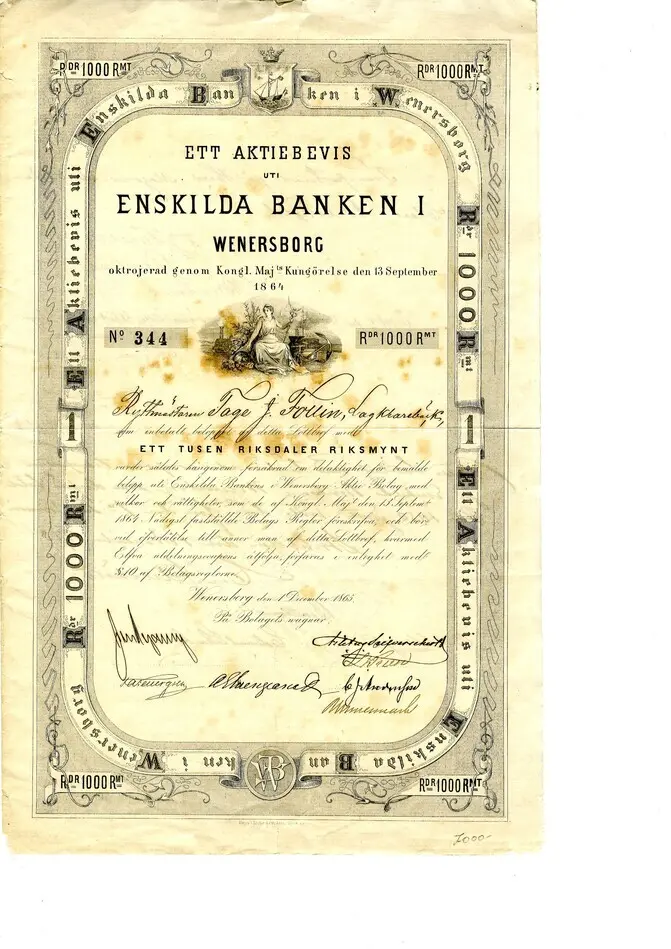 RDR 1000 RMT
RDR 1000 RMT
Enskilda Banken i Wenersborg
Ett Aktiebevis uti
Rdr 1000 Rmt
ETT AKTIEBEVIS
UTI
ENSKILDA BANKEN I
WENERSBORG
oktrojerad genom Kongl. Maj:ts Kungörelse den 13 September
1864
No 344
RDR 1000 RMT
Ryttmästaren Tage J. Follin,
som inbetalt beloppet af detta Lottbref med
ETT TUSEN RIKSDALER RIKSMYNT
varder således härigenom försäkrad om delaktighet för bemälde
belopp uti Enskilda Bankens i Wenersborg Aktie Bolag med
vilkor och rättigheter, som de af Kongl. Maj:t den 13 Septembr
1864 Nådigst fastställde Bolags Reglor föreskrifva, och bör
vid öfverlåtelse till annor man af detta Lottbref, hvarmed
Elfva utdelningscupons åtfölja, förfaras i enlighet med
§10 af Bolagsreglorne.
Wenersborg den 1 December 1865.
På Bolagets wägnar
1
1
Rdr 1000 Rmt
Ett Aktiebevis uti
Enskilda Banken i Wenersborg
WB
RDR 1000 RMT
RDR 1000 RMT
7000-